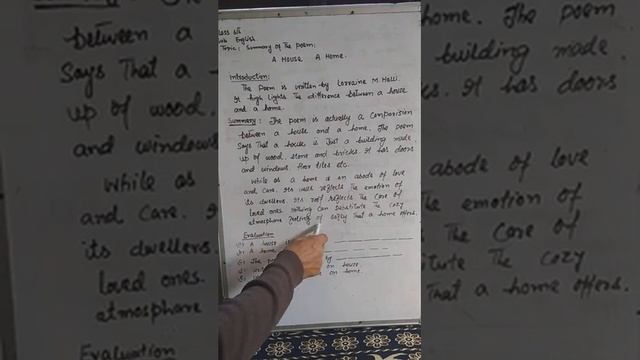 Class 6th
Sub English
Topic: Summary of The Poem:
A House A Home.
Introduction:
The Poem is written by Lorraine M Halli.
It high lights The difference between a house
and a home.
Summary: The Poem is actually a Comparision
between a house and a home. The Poem
Says That a house is Just a building made
up of wood, stone and bricks. It has doors
and windows, floor tiles etc.
While as a home is an abode of love
and Care. Its walls reflects The emotion of
its dwellers. Its roof reflects The Care of
loved ones. Nothing Can Substitute The Cozy
atmosphere feeling of That a home offers.
Evaluation
1) A house
2) A home
3) The Po by
4) on house
5) on home.